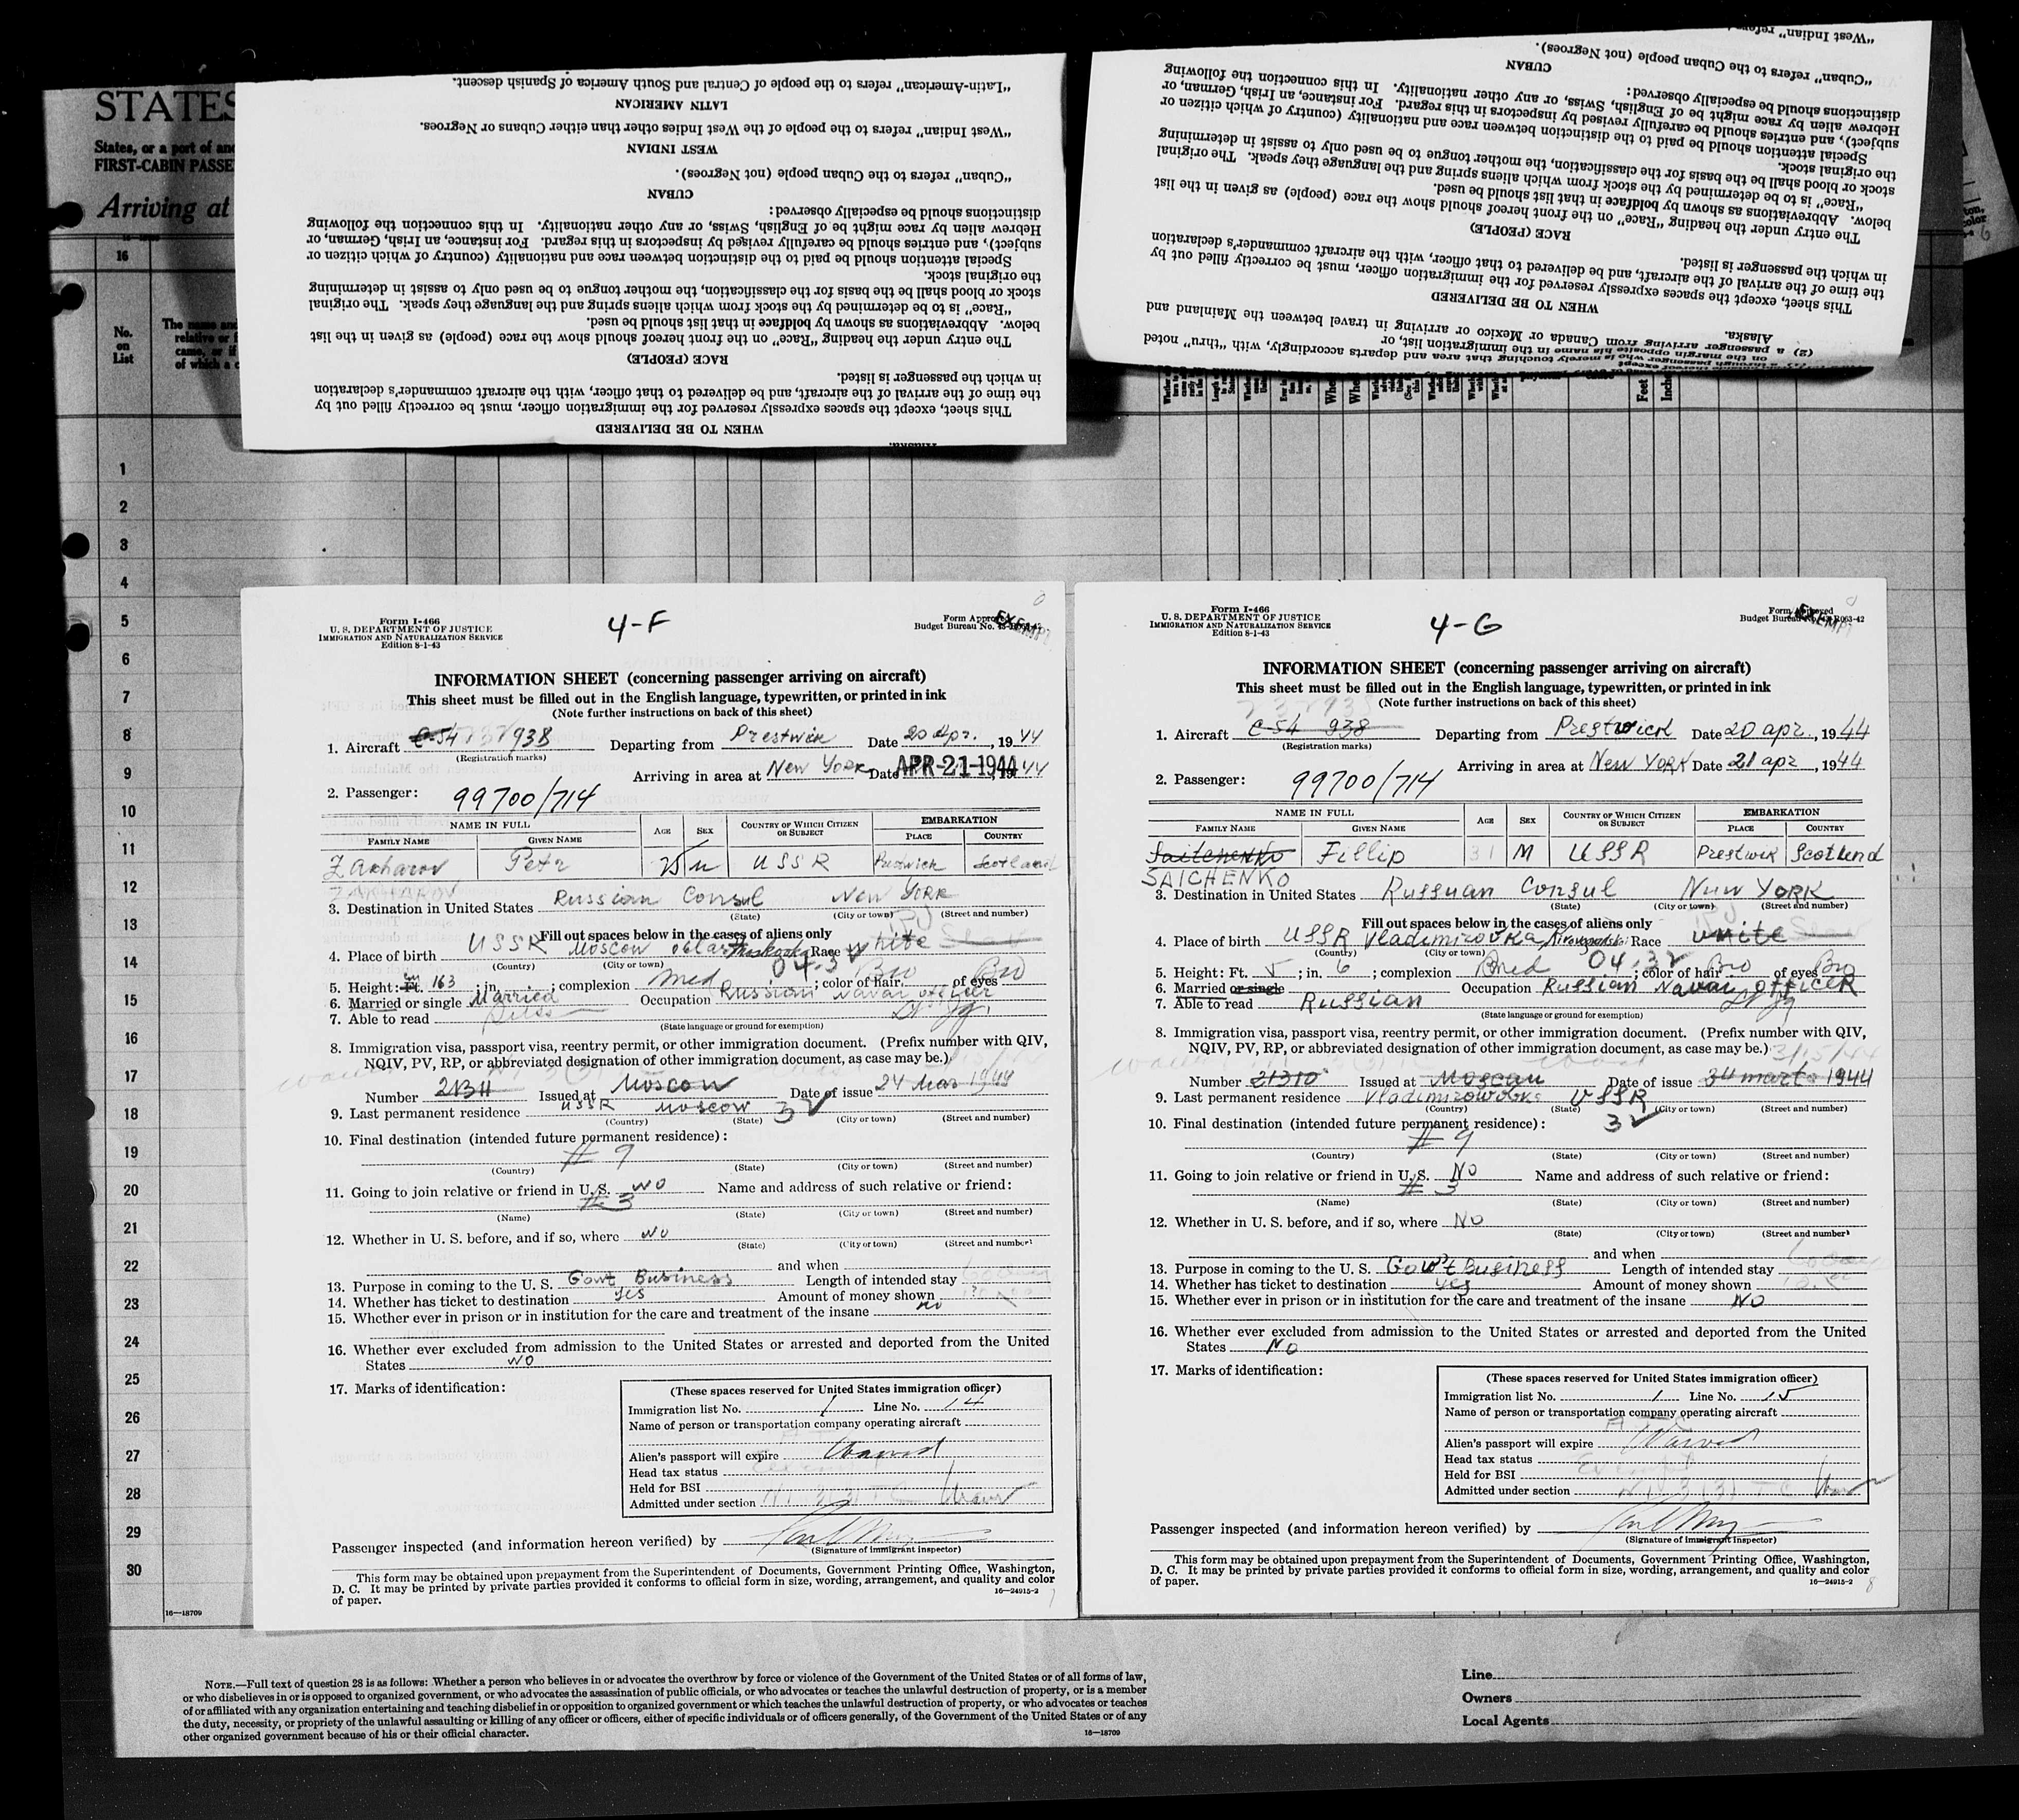 STATES
States, or a port of
FIRST-CABIN PASSE
Arriving at
16
No.
on
List
"Latin-American" refers to the people of Central and South America of Spanish descent.
LATIN AMERICAN
"West Indian" refers to the people of the West Indies other than either Cubans or Negroes.
WEST INDIAN
"Cuban" refers to the Cuban people (not Negroes).
CUBAN
distinctions should be especially observed:
Hebrew alien by race might be of English, Swiss, or any other nationality. In this connection the following
subject), and entries should be carefully revised by inspectors in this regard. For instance, an Irish, German, or
Special attention should be paid to the distinction between race and nationality (country of which citizen or
the original stock.
stock or blood shall be the basis for the classification, the mother tongue to be used only to assist in determining
"Race" is to be determined by the stock from which aliens spring and the language they speak. The original
below. Abbreviations as shown by boldface in that list should be used.
The entry under the heading "Race" on the front hereof should show the race (people) as given in the list
RACE (PEOPLE)
in which the passenger is listed.
the time of the arrival of the aircraft, and be delivered to that officer, with the aircraft commander's declaration
This sheet, except the spaces expressly reserved for the immigration officer, must be correctly filled out by
WHEN TO BE DELIVERED
"West Indian"
"Cuban" refers to the Cuban people (not Negroes).
CUBAN
distinctions should be especially observed:
Hebrew alien by race might be of English, Swiss, or any other nationality. In this connection the following
subject), and entries should be carefully revised by inspectors in this regard. For instance, an Irish, German, or
Special attention should be paid to the distinction between race and nationality (country of which citizen or
the original stock.
stock or blood shall be the basis for the classification, the mother tongue to be used only to assist in determining
"Race" is to be determined by the stock from which aliens spring and the language they speak. The original
below. Abbreviations as shown by boldface in that list should be used.
The entry under the heading "Race" on the front hereof should show the race (people) as given in the list
RACE (PEOPLE)
in which the passenger is listed.
the time of the arrival of the aircraft, and be delivered to that officer, with the aircraft commander's declaration
This sheet, except the spaces expressly reserved for the immigration officer, must be correctly filled out by
WHEN TO BE DELIVERED
Alaska.
(2) a passenger arriving from Canada or Mexico or arriving in travel between the Mainland and
on the margin opposite his name in the immigration list, or
who is merely touching that area and departs accordingly, with "thru" noted
Feet
1
2
3
4
5
6
7
8
9
10
11
12
13
14
15
16
17
18
19
20
21
22
23
24
25
26
27
28
29
30
16—18709
Form I-466
U. S. DEPARTMENT OF JUSTICE
IMMIGRATION AND NATURALIZATION SERVICE
Edition 8-1-43
4-F
Form Approved
Budget Bureau No.
EXEMPT
INFORMATION SHEET (concerning passenger arriving on aircraft)
This sheet must be filled out in the English language, typewritten, or printed in ink
(Note further instructions on back of this sheet)
1. Aircraft C-54 938 Departing from Prestwik Date 20 Apr., 1944
(Registration marks)
Arriving in area at New York Date APR 21 1944 44
2. Passenger: 99700/714
NAME IN FULL AGE SEX COUNTRY OF WHICH CITIZEN OR SUBJECT EMBARKATION
FAMILY NAME GIVEN NAME PLACE COUNTRY
Zakharov Petr 25 M USSR Prestwick Scotland
ZAKHAROV
3. Destination in United States Russian Consul New York
(State) (City or town) (Street and number)
Fill out spaces below in the cases of aliens only
4. Place of birth USSR Moscow Race white
(Country) (City or town)
04-3
5. Height: Ft. 163; in. ; complexion Med; color of hair Bro of eyes Bro
6. Married or single Married Occupation Russian naval officer
7. Able to read
(State language or ground for exemption)
8. Immigration visa, passport visa, reentry permit, or other immigration document. (Prefix number with QIV,
NQIV, PV, RP, or abbreviated designation of other immigration document, as case may be.)
Number 21311 Issued at Moscow Date of issue 24 Mar 1944
9. Last permanent residence USSR Moscow 3
(Country) (State) (City or town) (Street and number)
10. Final destination (intended future permanent residece):
# 9
(Country) (State) (City or town) (Street and number)
11. Going to join relative or friend in U.S. NO Name and address of such relative or friend:
# 3
(Name) (State) (City or town) (Street and number)
12. Whether in U. S. before, and if so, where NO
(State) (City or town) (Street and number)
and when
13. Purpose in coming to the U. S. Govt Business Length of intended stay
14. Whether has ticket to destination yes Amount of money shown
15. Whether ever in prison or in institution for the care and treatment of the insane no
16. Whether ever excluded from admission to the United States or arrested and deported from the United
States NO
17. Marks of identification:
(These spaces reserved for United States immigration officer)
Immigration list No. 1 Line No. 14
Name of person or transportation company operating aircraft
Alien's passport will expire Waived
Head tax status Exempt
Held for BSI
Admitted under section
Passenger inspected (and information hereon verified) by
(Signature of immigrant inspector)
This form may be obtained upon prepayment from the Superintendent of Documents, Government Printing Office, Washington,
D. C. It may be printed by private parties provided it conforms to official form in size, wording, arrangement, and quality and color
of paper.
16—24915-2
Form I-466
U. S. DEPARTMENT OF JUSTICE
IMMIGRATION AND NATURALIZATION SERVICE
Edition 8-1-43
4-G
Form Approved
Budget Bureau No. 43-R063-42
EXEMPT
INFORMATION SHEET (concerning passenger arriving on aircraft)
This sheet must be filled out in the English language, typewritten, or printed in ink
(Note further instructions on back of this sheet)
1. Aircraft C-54 938 Departing from Prestwick Date 20 apr, 1944
(Registration marks)
Arriving in area at New York Date 21 apr, 1944
2. Passenger: 99700/714
NAME IN FULL AGE SEX COUNTRY OF WHICH CITIZEN OR SUBJECT EMBARKATION
FAMILY NAME GIVEN NAME PLACE COUNTRY
Saitchenko Fillip 31 M USSR Prestwik Scotlend
SAICHENKO
3. Destination in United States Russuan Consul New YORK
(State) (City or town) (Street and number)
Fill out spaces below in the cases of aliens only
4. Place of birth USSR Vladimirovka Race white
(Country) (City or town)
04-3
5. Height: Ft. 5; in. 6; complexion Med; color of hair Bro of eyes Bro
6. Married or single Occupation Russian Naval officer
7. Able to read Russian
(State language or ground for exemption)
8. Immigration visa, passport visa, reentry permit, or other immigration document. (Prefix number with QIV,
NQIV, PV, RP, or abbreviated designation of other immigration document, as case may be.)
Number 21310 Issued at Moscau Date of issue 1944
9. Last permanent residence USSR
(Country) (State) (City or town) (Street and number)
3
10. Final destination (intended future permanent residence):
# 9
(Country) (State) (City or town) (Street and number)
11. Going to join relative or friend in U.S. NO Name and address of such relative or friend:
# 3
(Name) (State) (City or town) (Street and number)
12. Whether in U. S. before, and if so, where NO
(State) (City or town) (Street and number)
and when
13. Purpose in coming to the U. S. Gov't Business Length of intended stay
14. Whether has ticket to destination yes Amount of money shown
15. Whether ever in prison or in institution for the care and treatment of the insane NO
16. Whether ever excluded from admission to the United States or arrested and deported from the United
States NO
17. Marks of identification:
(These spaces reserved for United States immigration officer)
Immigration list No. 1 Line No. 15
Name of person or transportation company operating aircraft
Alien's passport will expire Waived
Head tax status Exempt
Held for BSI
Admitted under section
Passenger inspected (and information hereon verified) by
(Signature of immigrant inspector)
This form may be obtained upon prepayment from the Superintendent of Documents, Government Printing Office, Washington,
D. C. It may be printed by private parties provided it conforms to official form in size, wording, arrangement, and quality and color
of paper.
16—24915-2
NOTE.—Full text of question 28 is as follows: Whether a person who believes in or advocates the overthrow by force or violence of the Government of the United States or of all forms of law,
or who disbelieves in or is opposed to organized government, or who advocates the assassination of public officials, or who advocates or teaches the unlawful destruction of property, or is a member
of or affiliated with any organization entertaining and teaching disbelief in or opposition to organized government or which teaches the unlawful destruction of property, or who advocates or teaches
the duty, necessity, or propriety of the unlawful assaulting or killing of any officer or officers, either of specific individuals or of officers generally, of the Government of the United States or of any
other organized government because of his or their official character.
16—18709
Line
Owners
Local Agents